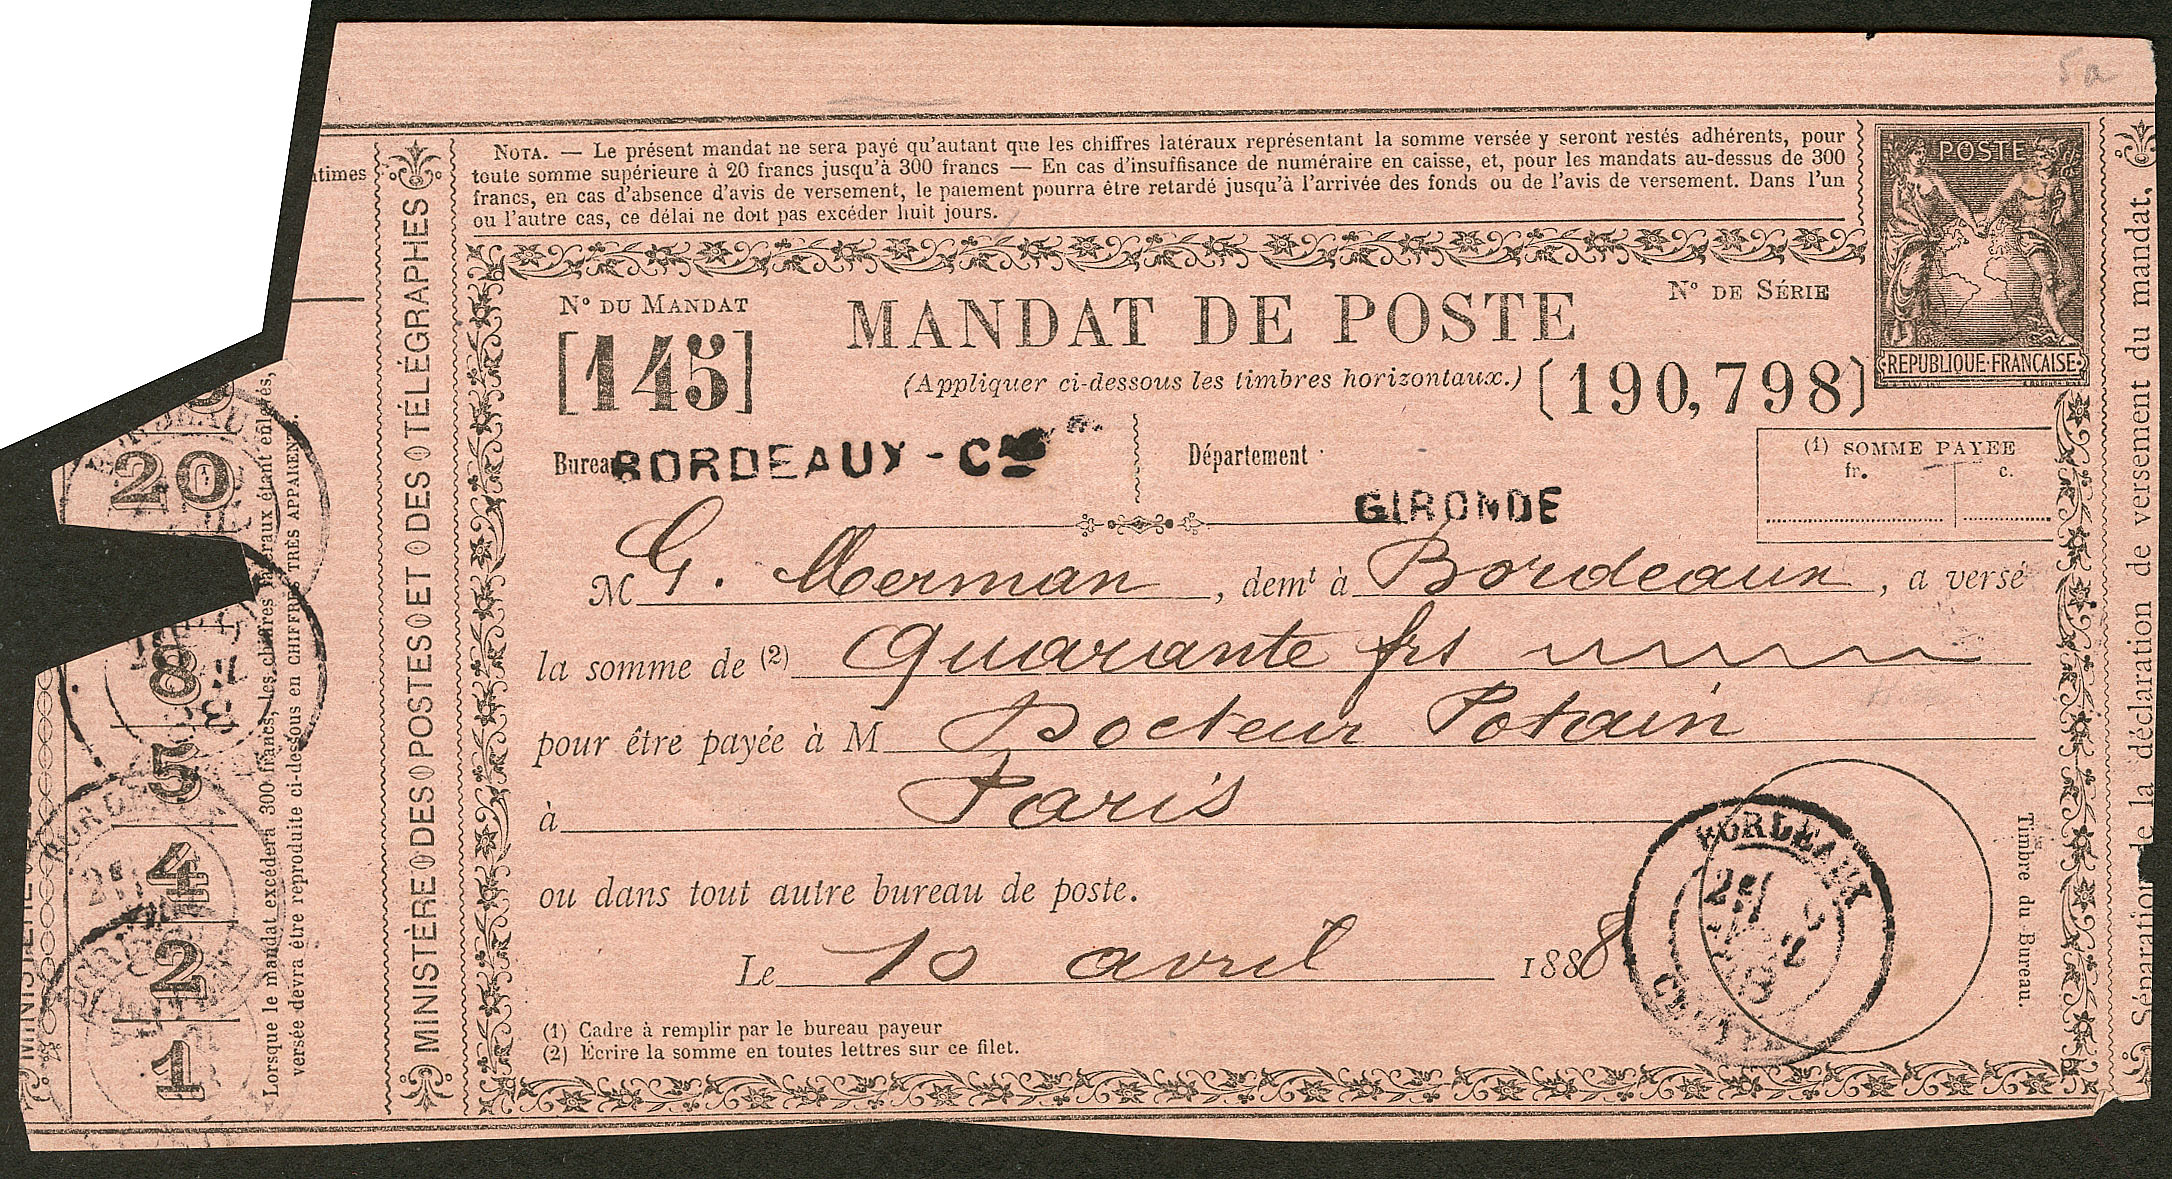 5a
NOTA. — Le présent mandat ne sera payé qu'autant que les chiffres latéraux représentant la somme versée y seront restés adhérents, pour
toute somme supérieure à 20 francs jusqu'à 300 francs — En cas d'insuffisance de numéraire en caisse, et, pour les mandats au-dessus de 300
francs, en cas d'absence d'avis de versement, le paiement pourra être retardé jusqu'à l'arrivée des fonds ou de l'avis de versement. Dans l'un
ou l'autre cas, ce délai ne doit pas excéder huit jours.
POSTE
REPUBLIQUE·FRANCAISE
ntimes
MINISTÈRE DES POSTES ET DES TÉLÉGRAPHES
N° DU MANDAT
[145]
MANDAT DE POSTE
(Appliquer ci-dessous les timbres horizontaux.)
N° DE SÉRIE
(190,798)
Bureau
BORDEAUX - Cle
Département
GIRONDE
(1) SOMME PAYEE
fr. c.
M G. Merman, demt à Bordeaux, a versé
la somme de (2) Quarante frs
pour être payée à M Docteur Potain
à Paris
ou dans tout autre bureau de poste.
Le 10 avril 1888
(1) Cadre à remplir par le bureau payeur
(2) Écrire la somme en toutes lettres sur ce filet.
BORDEAUX
Timbre du Bureau.
Séparation de la déclaration de versement du mandat.
20
8
5
4
2
1
Lorsque le mandat excédera 300 francs, les chiffres latéraux étant enlevés,
versée devra être reproduite ci-dessous en CHIFFRES TRÈS APPARENTS.
MINISTÈRE